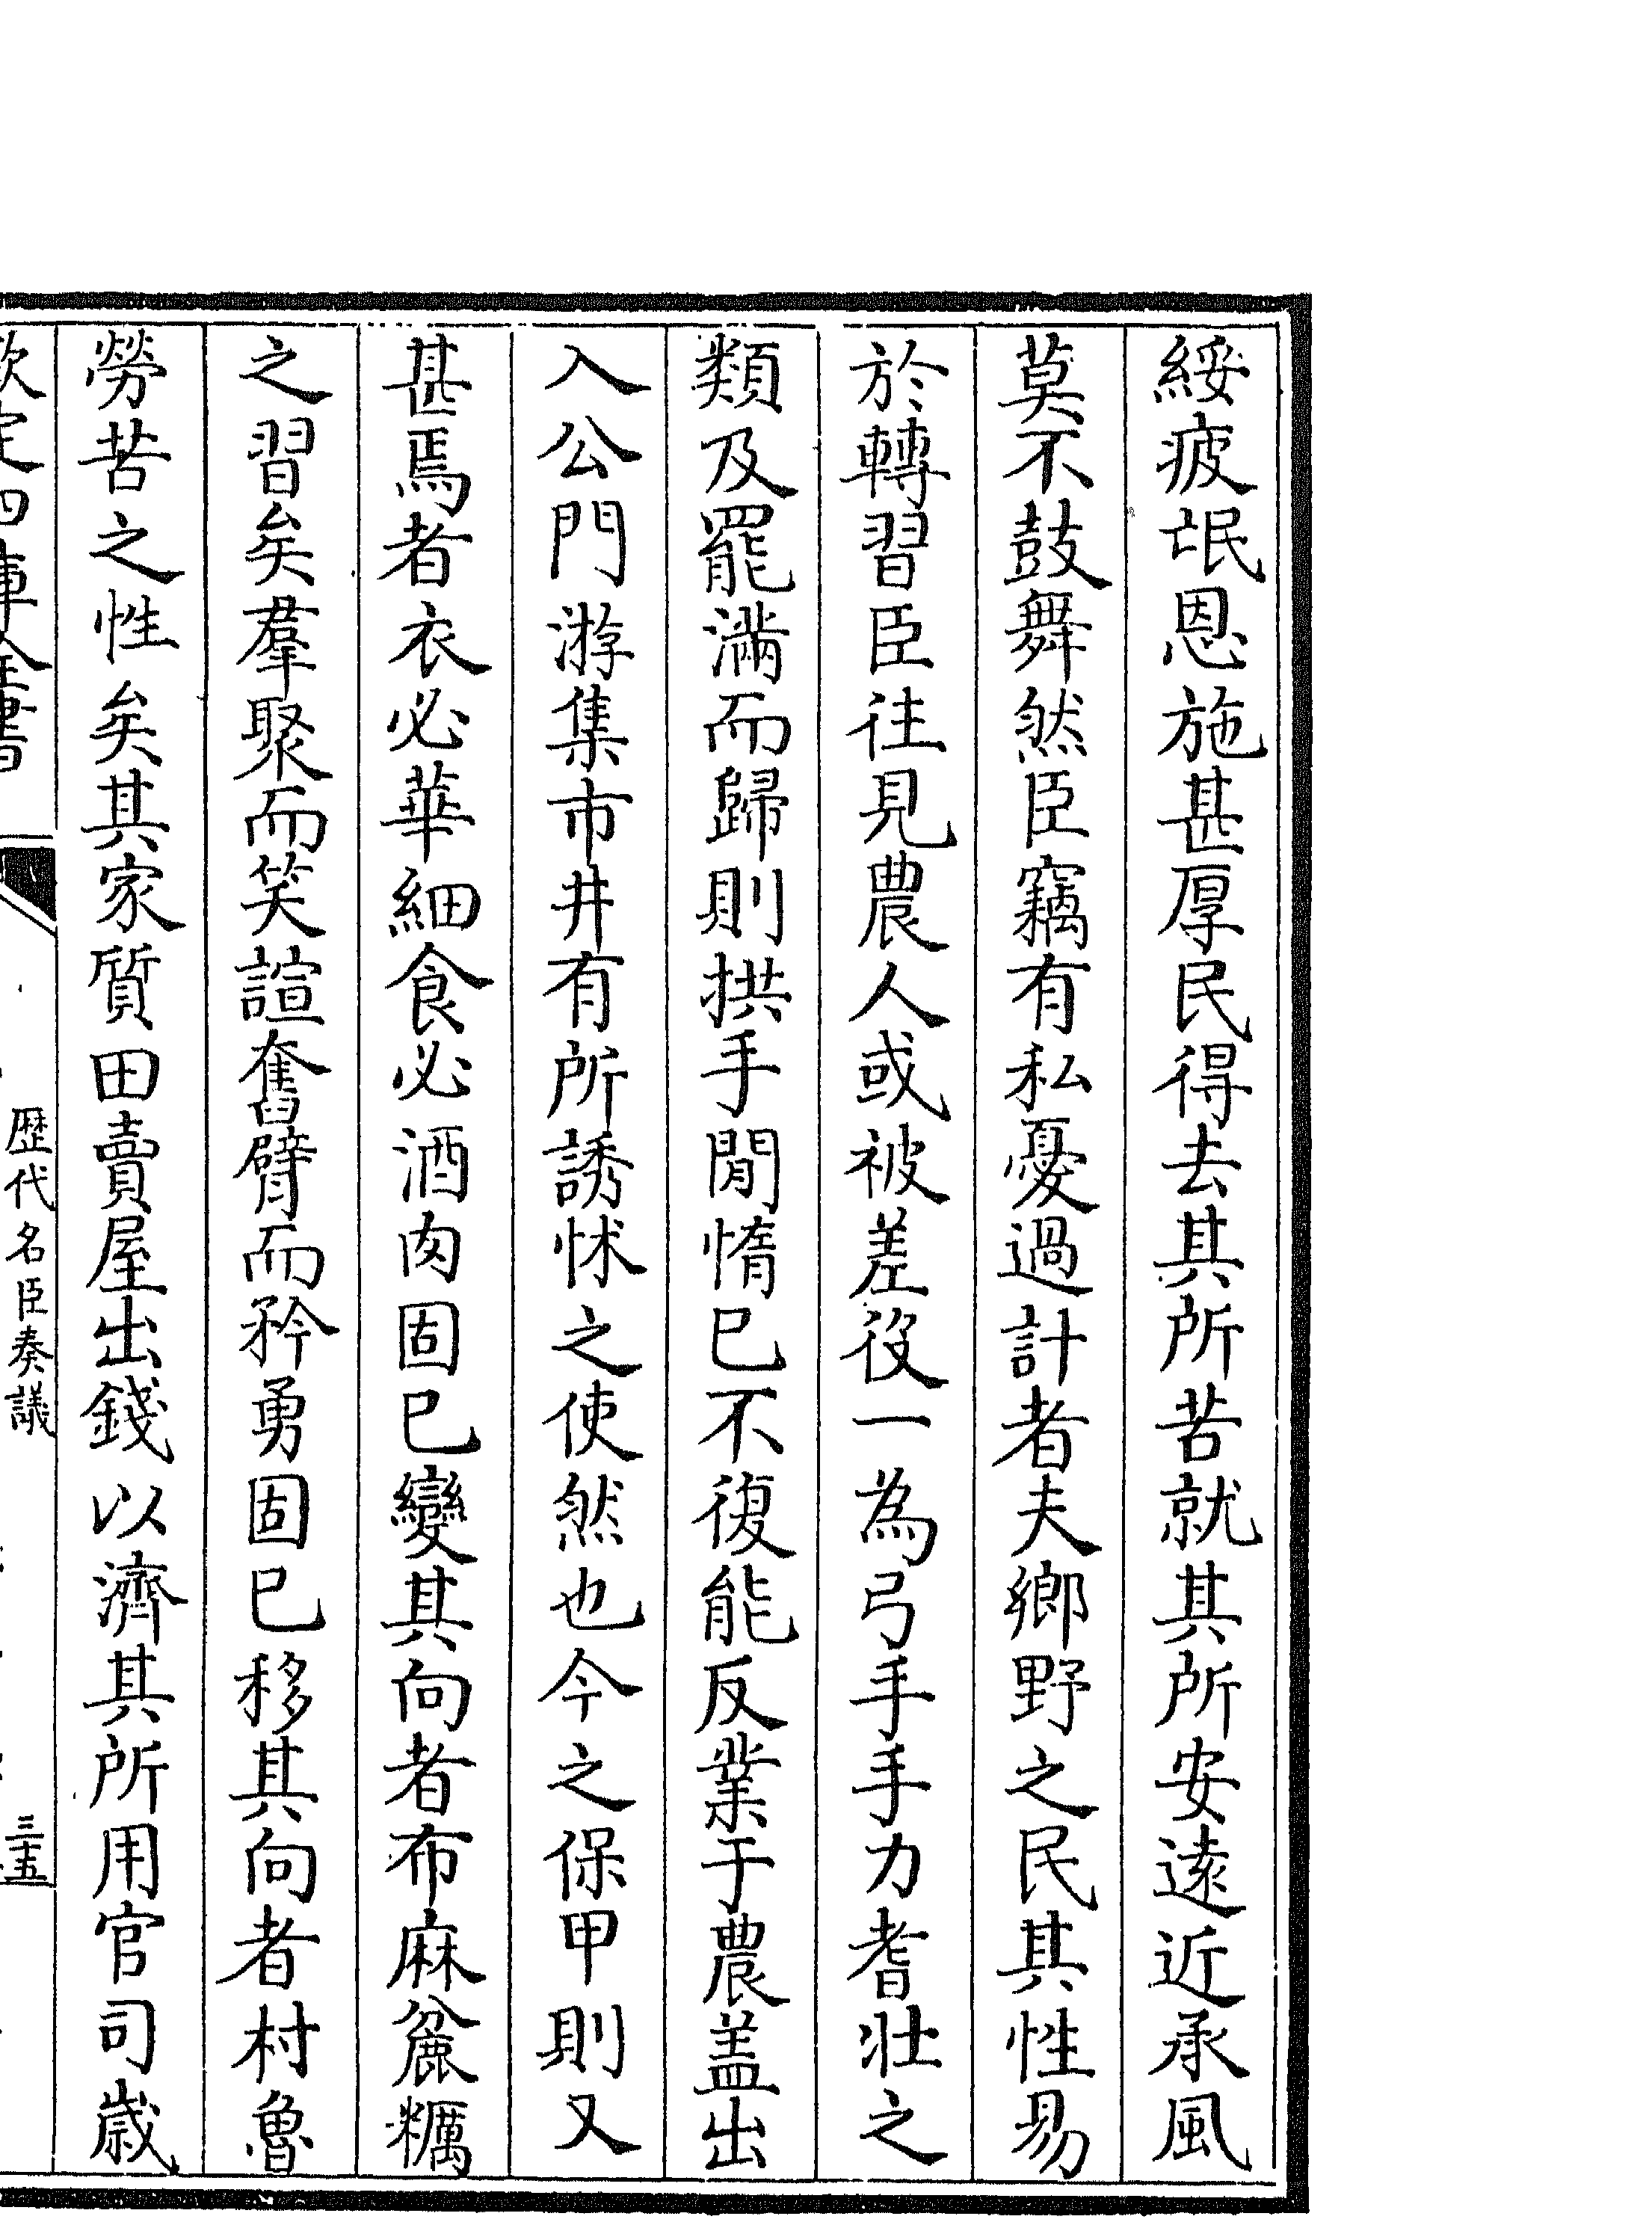 綏疲氓恩施甚厚民得去其所苦就其所安逺近承風
莫不鼓舞然臣竊有私憂過計者夫鄉野之民其性易
於轉習臣往見農人或被差役一為弓手手力耆壯之
類及罷滿而歸則拱手閒惰已不復能反業于農盖出
入公門游集市井有所誘怵之使然也今之保甲則又
甚焉者衣必華細食必酒肉固已變其向者布麻麄糲
之習矣羣聚而笑諠奮臂而矜勇固已移其向者村魯
勞苦之性矣其家質田賣屋出錢以濟其所用官司歳
欽定四庫全書
歴代名臣奏議
三十五